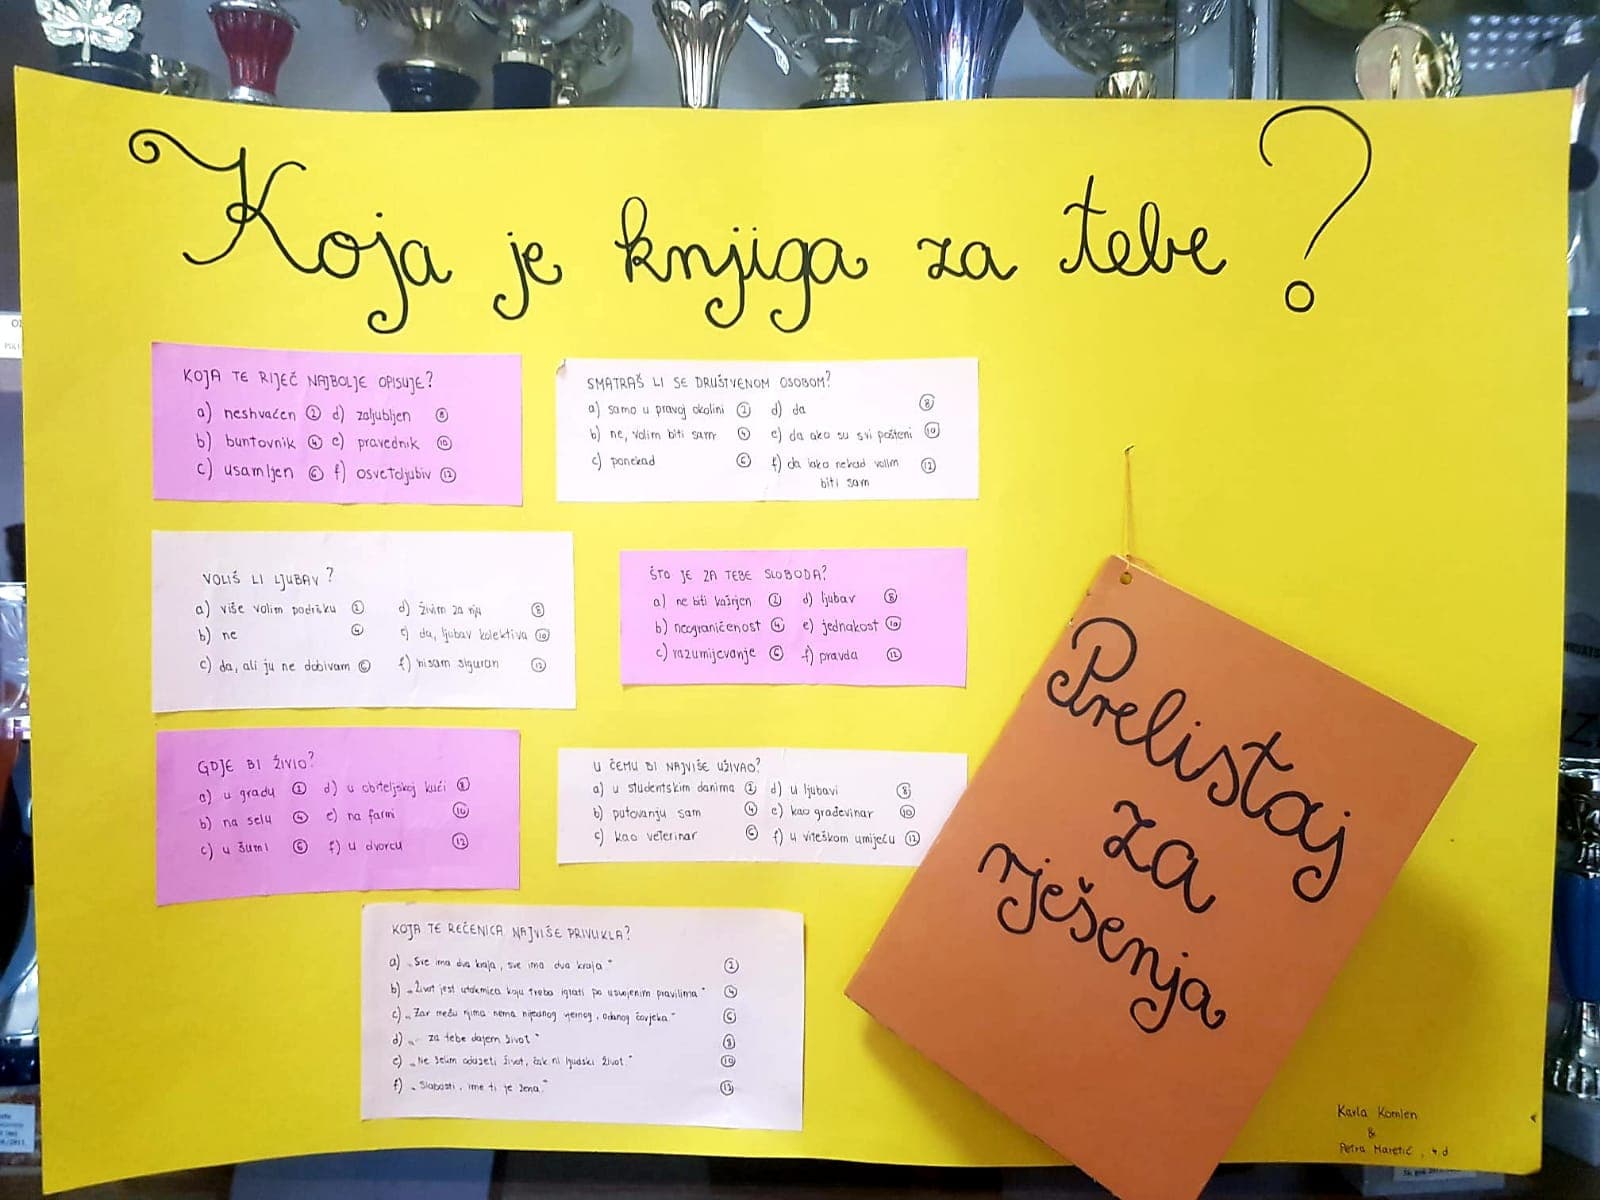 Koja je knjiga za tebe?
KOJA TE RIJEČ NAJBOLJE OPISUJE?
a) neshvaćen ② d) zaljubljen ⑧
b) buntovnik ④ e) pravednik ⑩
c) usamljen ⑥ f) osvetoljubiv ⑫
SMATRAŠ LI SE DRUŠTVENOM OSOBOM?
a) samo u pravoj okolini ② d) da ⑧
b) ne, volim biti sam ④ e) da ako su svi pošteni ⑩
c) ponekad ⑥ f) da iako nekad volim ⑫
biti sam
VOLIŠ LI LJUBAV?
a) više volim podršku ② d) živim za nju ⑧
b) ne ④ e) da, ljubav kolektiva ⑩
c) da, ali ju ne dobivam ⑥ f) nisam siguran ⑫
ŠTO JE ZA TEBE SLOBODA?
a) ne biti kažnjen ② d) ljubav ⑧
b) neograničenost ④ e) jednakost ⑩
c) razumijevanje ⑥ f) pravda ⑫
GDJE BI ŽIVIO?
a) u gradu ② d) u obiteljskoj kući ⑧
b) na selu ④ e) na farmi ⑩
c) u šumi ⑥ f) u dvorcu ⑫
U ČEMU BI NAJVIŠE UŽIVAO?
a) u studentskim danima ② d) u ljubavi ⑧
b) putovanju sam ④ e) kao građevinar ⑩
c) kao veterinar ⑥ f) u viteškom umijeću ⑫
KOJA TE REČENICA NAJVIŠE PRIVUKLA?
a) „Sve ima dva kraja, sve ima dva kraja" ②
b) „Život jest utakmica koju treba igrati po usvojenim pravilima" ④
c) „Zar među njima nema nijednog vjernog, odanog čovjeka." ⑥
d) „- za tebe dajem život" ⑧
e) „Ne želim oduzeti život, čak ni ljudski život" ⑩
f) „Slabosti, ime ti je žena." ⑫
Prelistaj
za
rješenja
Karla Komlen
&
Petra Maretić, 4.d